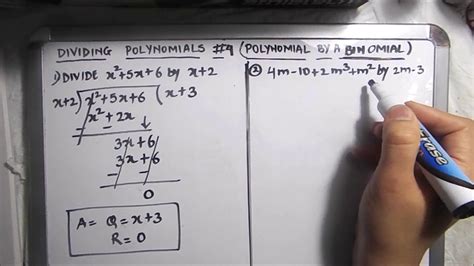 DIVIDING POLYNOMIALS #9 (POLYNOMIAL BY A BINOMIAL)
1) DIVIDE x²+5x+6 by x+2
x+2) x²+5x+6 ( x+3
x²+2x
- -
3x+6
3x+6
- -
0
A= Q= x+3
R=0
② 4m-10+2m³+m² by 2m-3
erase